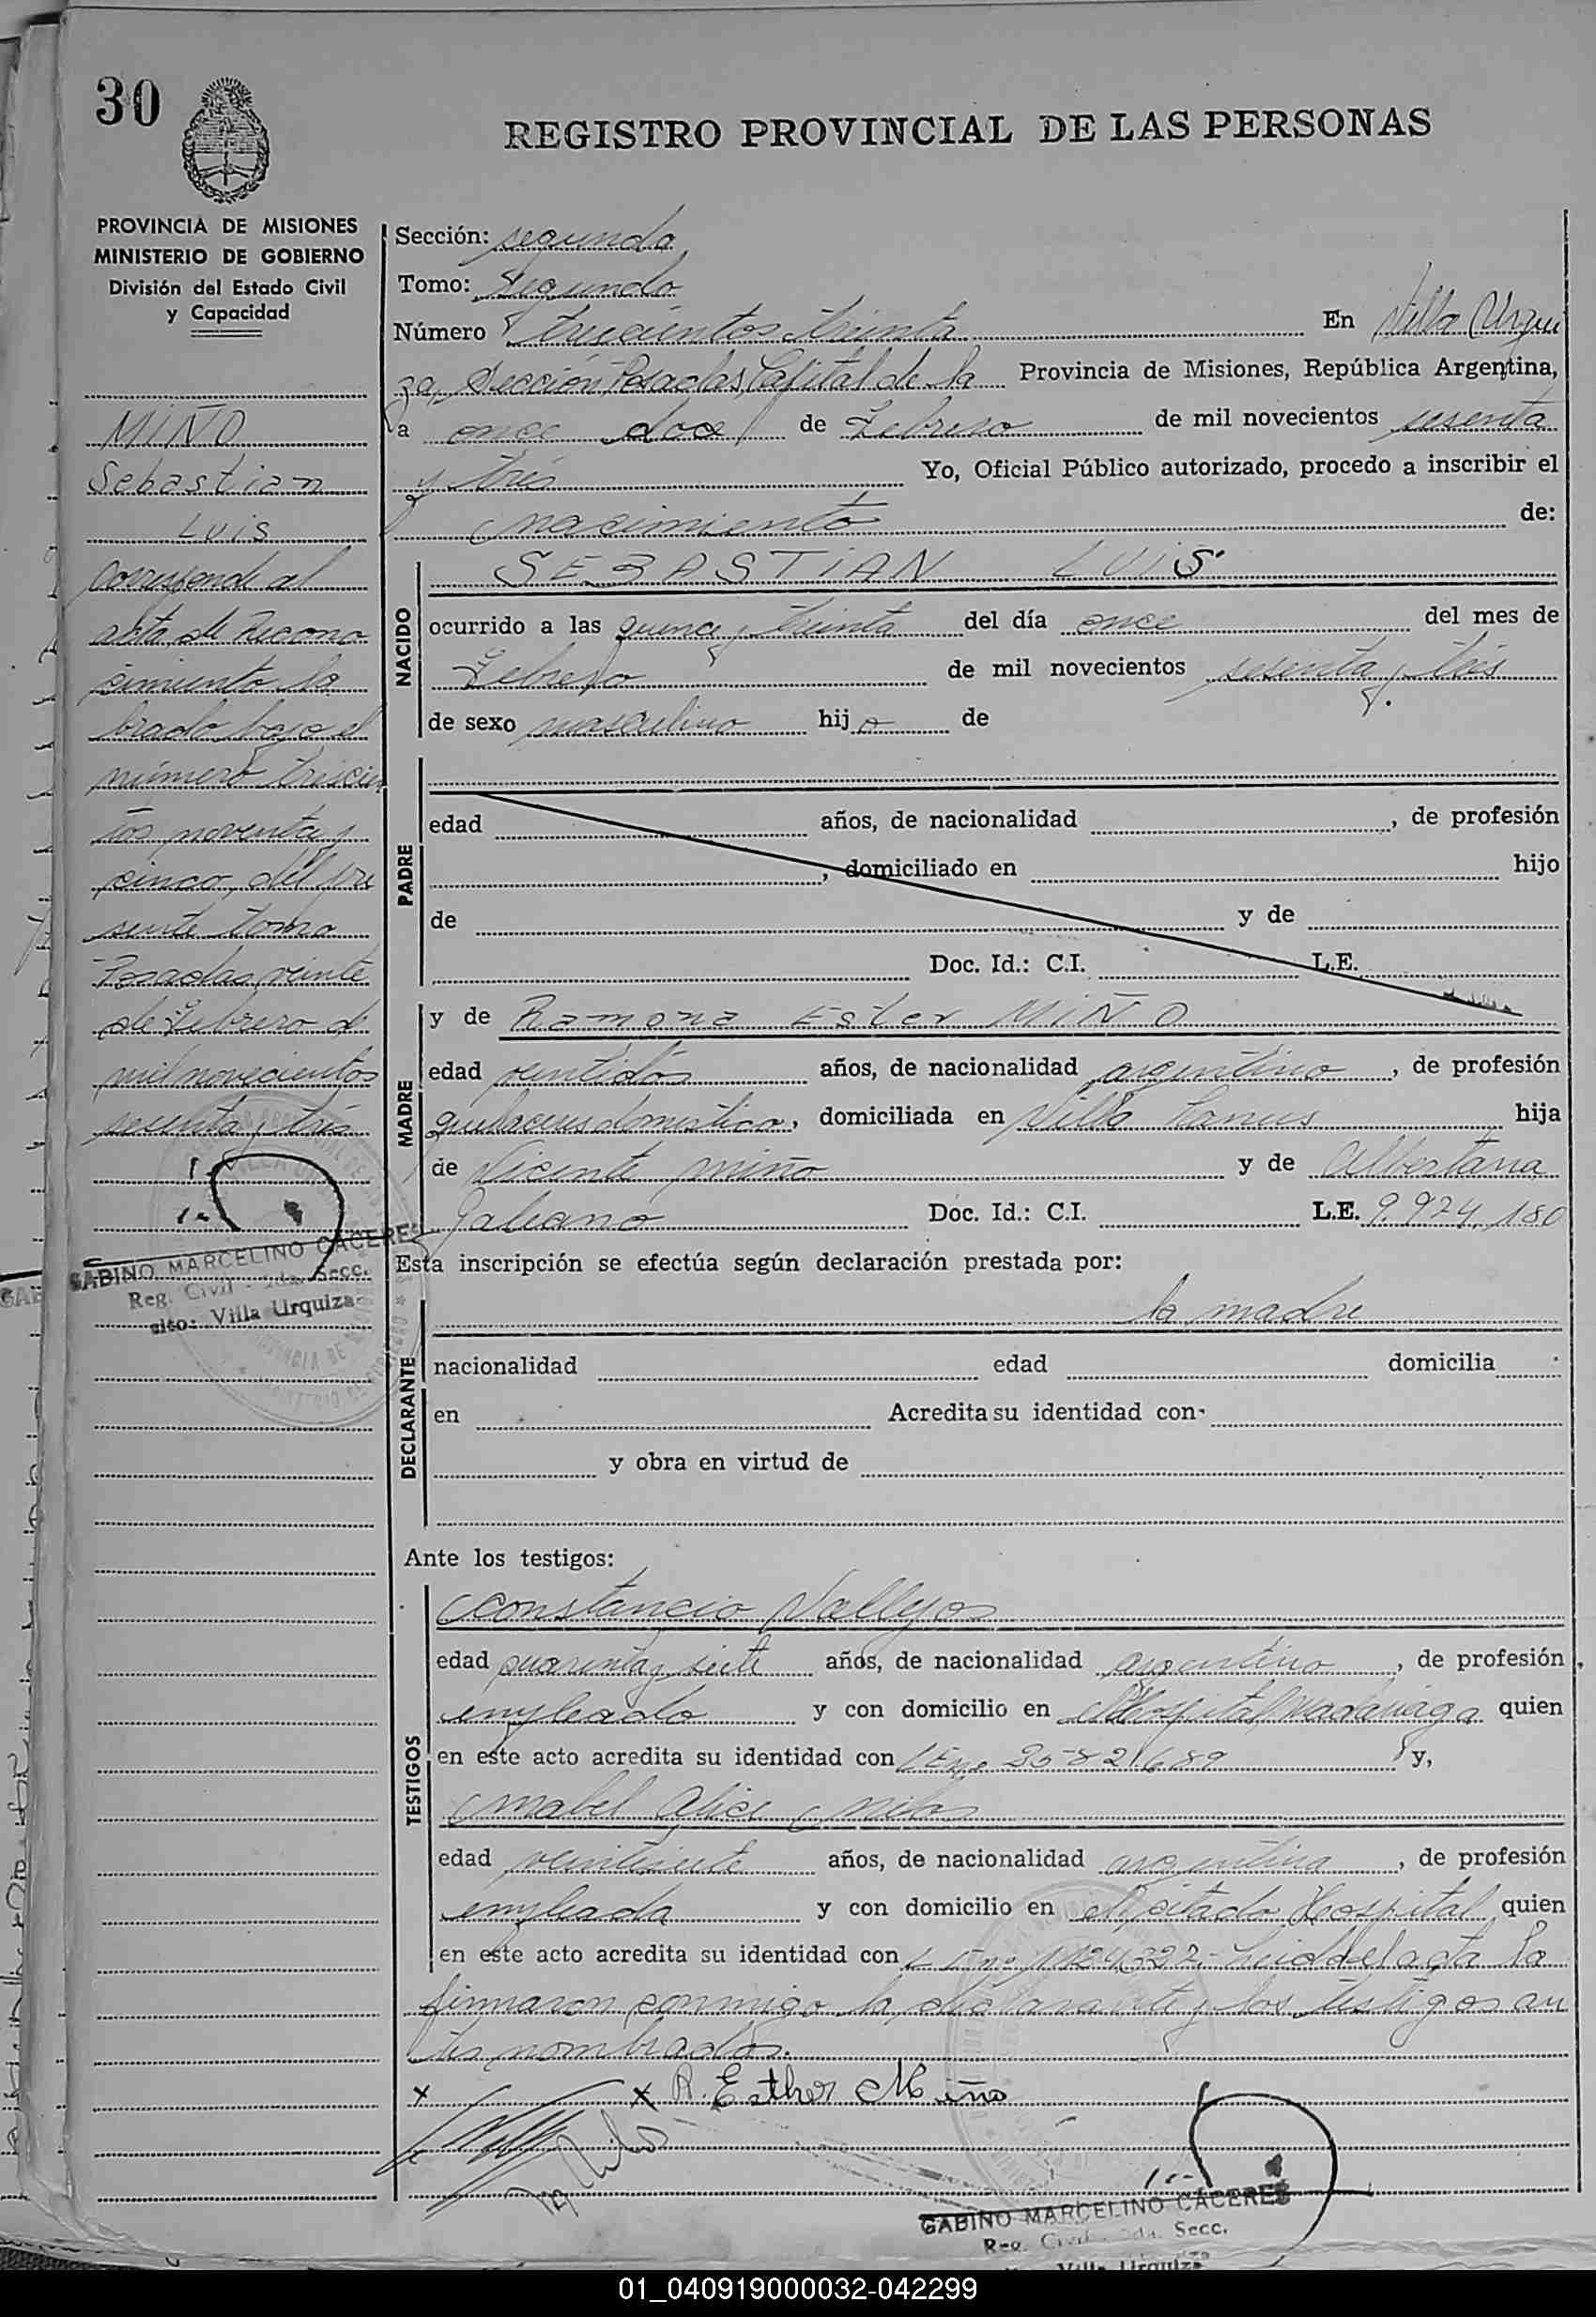 30
REGISTRO PROVINCIAL DE LAS PERSONAS
PROVINCIA DE MISIONES
MINISTERIO DE GOBIERNO
División del Estado Civil
y Capacidad
MIÑO
Sebastian
Luis
Corresponde al
acta de Recono
cimiento la
brado bajo el
número trescien
tos noventa y
cinco, del pre
sente tomo
Posadas, veinte
de Febrero de
mil novecientos
sesenta y tres
GABINO MARCELINO CACERES
Reg. Civil - 2da. Secc.
sito: Villa Urquiza
Sección: segunda
Tomo: segundo
Número trescientos treinta En Villa Urqui
za, Sección Posadas, Capital de la Provincia de Misiones, República Argentina,
a once doce de Febrero de mil novecientos sesenta
y tres Yo, Oficial Público autorizado, procedo a inscribir el
nacimiento de:
NACIDO
SEBASTIAN LUIS
ocurrido a las quince y treinta del día once del mes de
Febrero de mil novecientos sesenta y tres
de sexo masculino hijo de
PADRE
edad años, de nacionalidad , de profesión
, domiciliado en hijo
de y de
Doc. Id.: C.I. L.E.
MADRE
y de Ramona Ester MIÑO
edad veintidos años, de nacionalidad argentina, de profesión
quehaceres domesticos, domiciliada en Villa Lanus hija
de Vicente Miño y de Albertana
Galeano Doc. Id.: C.I. L.E. 9.924.180
Esta inscripción se efectúa según declaración prestada por:
DECLARANTE
la madre
nacionalidad edad domicilia
en Acredita su identidad con
y obra en virtud de
Ante los testigos:
TESTIGOS
Constancio Vallejos
edad cuarenta y siete años, de nacionalidad argentino, de profesión
empleado y con domicilio en Hospital Madariaga quien
en este acto acredita su identidad con y,
Mabel Alice
edad veintisiete años, de nacionalidad argentina, de profesión
empleada y con domicilio en el citado Hospital quien
en este acto acredita su identidad con Leida el acta la
firmaron conmigo la declarante y los testigos an
tes nombrados.
x x R. Esther Miño
GABINO MARCELINO CACERES
Reg. Civil 2da. Secc.
Villa Urquiza
01_040919000032-042299